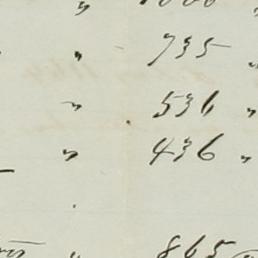 " 1000 "
" 735 "
" 536 "
" 436 "
" 865 "